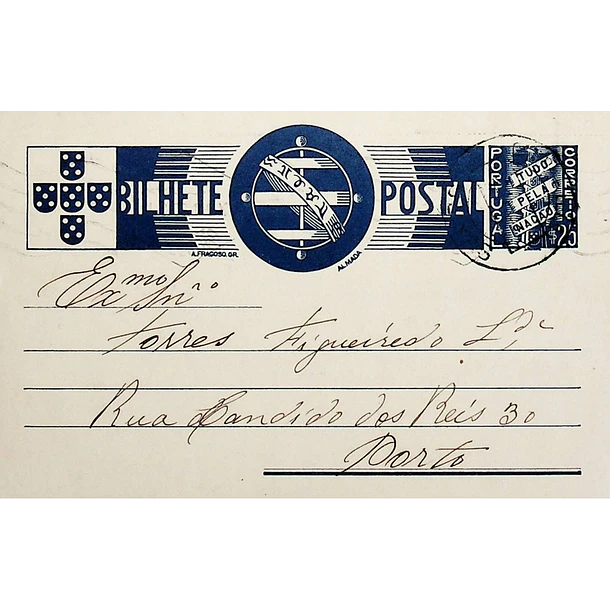 BILHETE POSTAL
PORTUGAL
CORREIO
TUDO
PELA
NAÇÃO
$25
A. FRAGOSO. GR.
ALMADA
Exmo Snro
Torres Figueiredo Lda
Rua Candido dos Reis 30
Porto